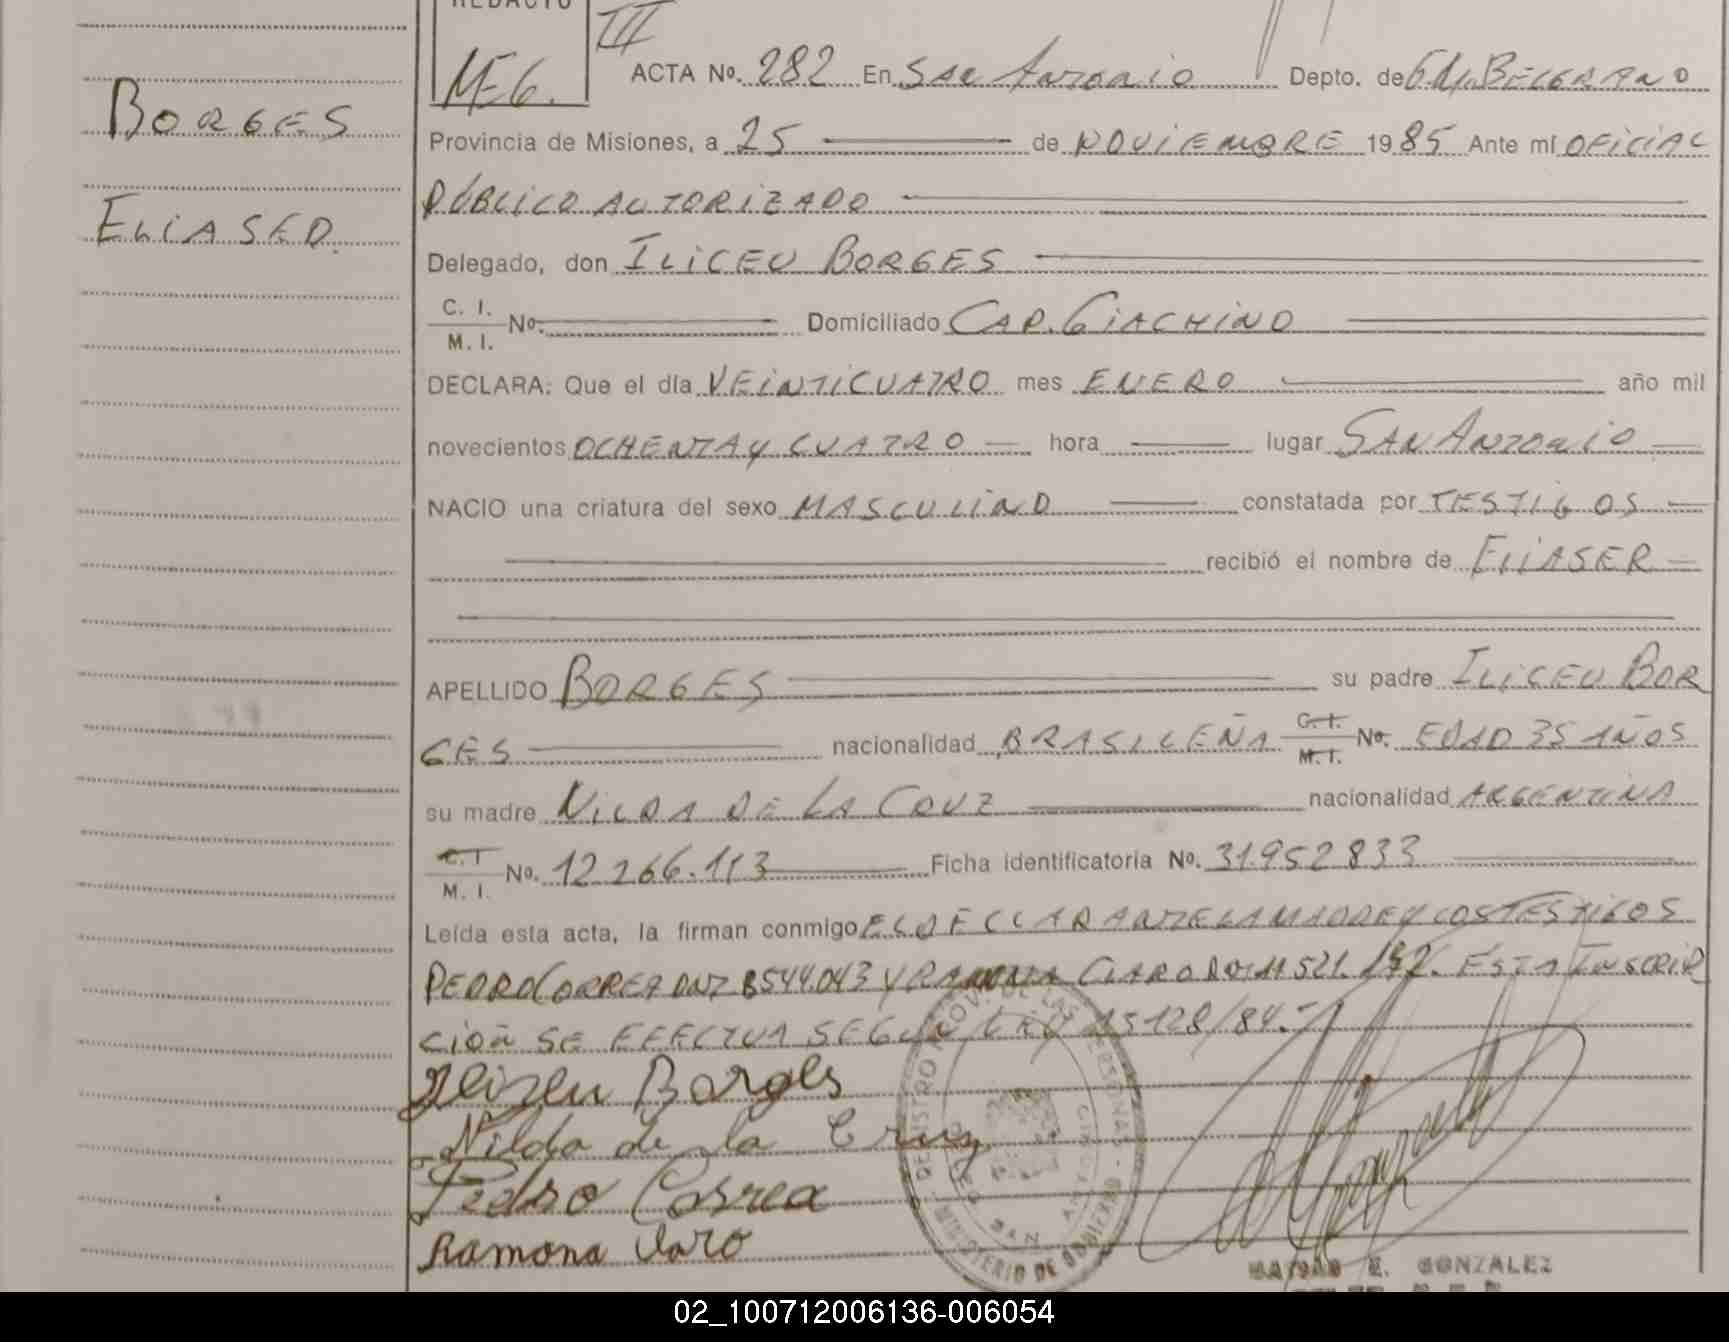 REDACTO
III
ME6.
ACTA No. 282 En San Antonio Depto. de Gral. BELGRANO
BORGES
Provincia de Misiones, a 25 de NOVIEMBRE 1985 Ante mí OFICIAL
PÚBLICO AUTORIZADO
ELIASER
Delegado, don ILICEU BORGES
C. I.
M. I. No. Domiciliado CAP. GIACHINO
DECLARA: Que el día VEINTICUATRO mes ENERO año mil
novecientos OCHENTA y CUATRO hora lugar SAN ANTONIO
NACIO una criatura del sexo MASCULINO constatada por TESTIGOS
recibió el nombre de ELIASER
APELLIDO BORGES su padre ILICEU BOR
GES nacionalidad BRASILEÑA C.I. M.I. No. EDAD 35 AÑOS
su madre NILDA DE LA CRUZ nacionalidad ARGENTINA
C.I
M. I. No. 12.266.113 Ficha identificatoria No. 31.952833
Leída esta acta, la firman conmigo EL DECLARANTE LA MADRE Y LOS TESTIGOS
PEDRO CORREA DNI 8544.043 Y RAMONA CLARO 11521. ESTA INSCRIP
CION SE EFECTUA SEGUN LEY 15128/84.-
Borges
Nilda de la Cruz
Pedro Correa
Ramona Claro
REGISTRO PROV. DE LAS PERSONAS
MINISTERIO DE GOBIERNO
SAN ANTONIO
E. GONZALEZ
02_100712006136-006054